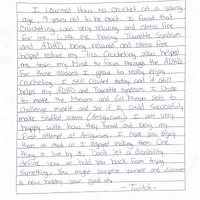 I learned How to crochet at a young
age. 9 years old to be exact. I found that
Crocheting was very relaxing and stress free
for me. With me having Tourette Syndrom
and ADHD, being relaxed and stress free
helped reduce my tics. Crocheting also helped
me train my Mind to focus through the ADHD.
For those reasons I grew to really enjoy
Crocheting. I still Crochet today and it still
helps my ADHD and Tourette Syndrom. I chose
to make the Minions and Gill Minion Sets to
challenge myself and see if I could successfully
make stuffed items (Amigurumi). I am very
happy with how they turned out being my
first attempt at Amigurumi. I hope you enjoy
them as much as I enjoyed making them. One
thing I live by is, Don't let a disability
define you or hold you back from trying
Something. You might surprise yourself and discover
a new hobby your good at.
- Twitch -